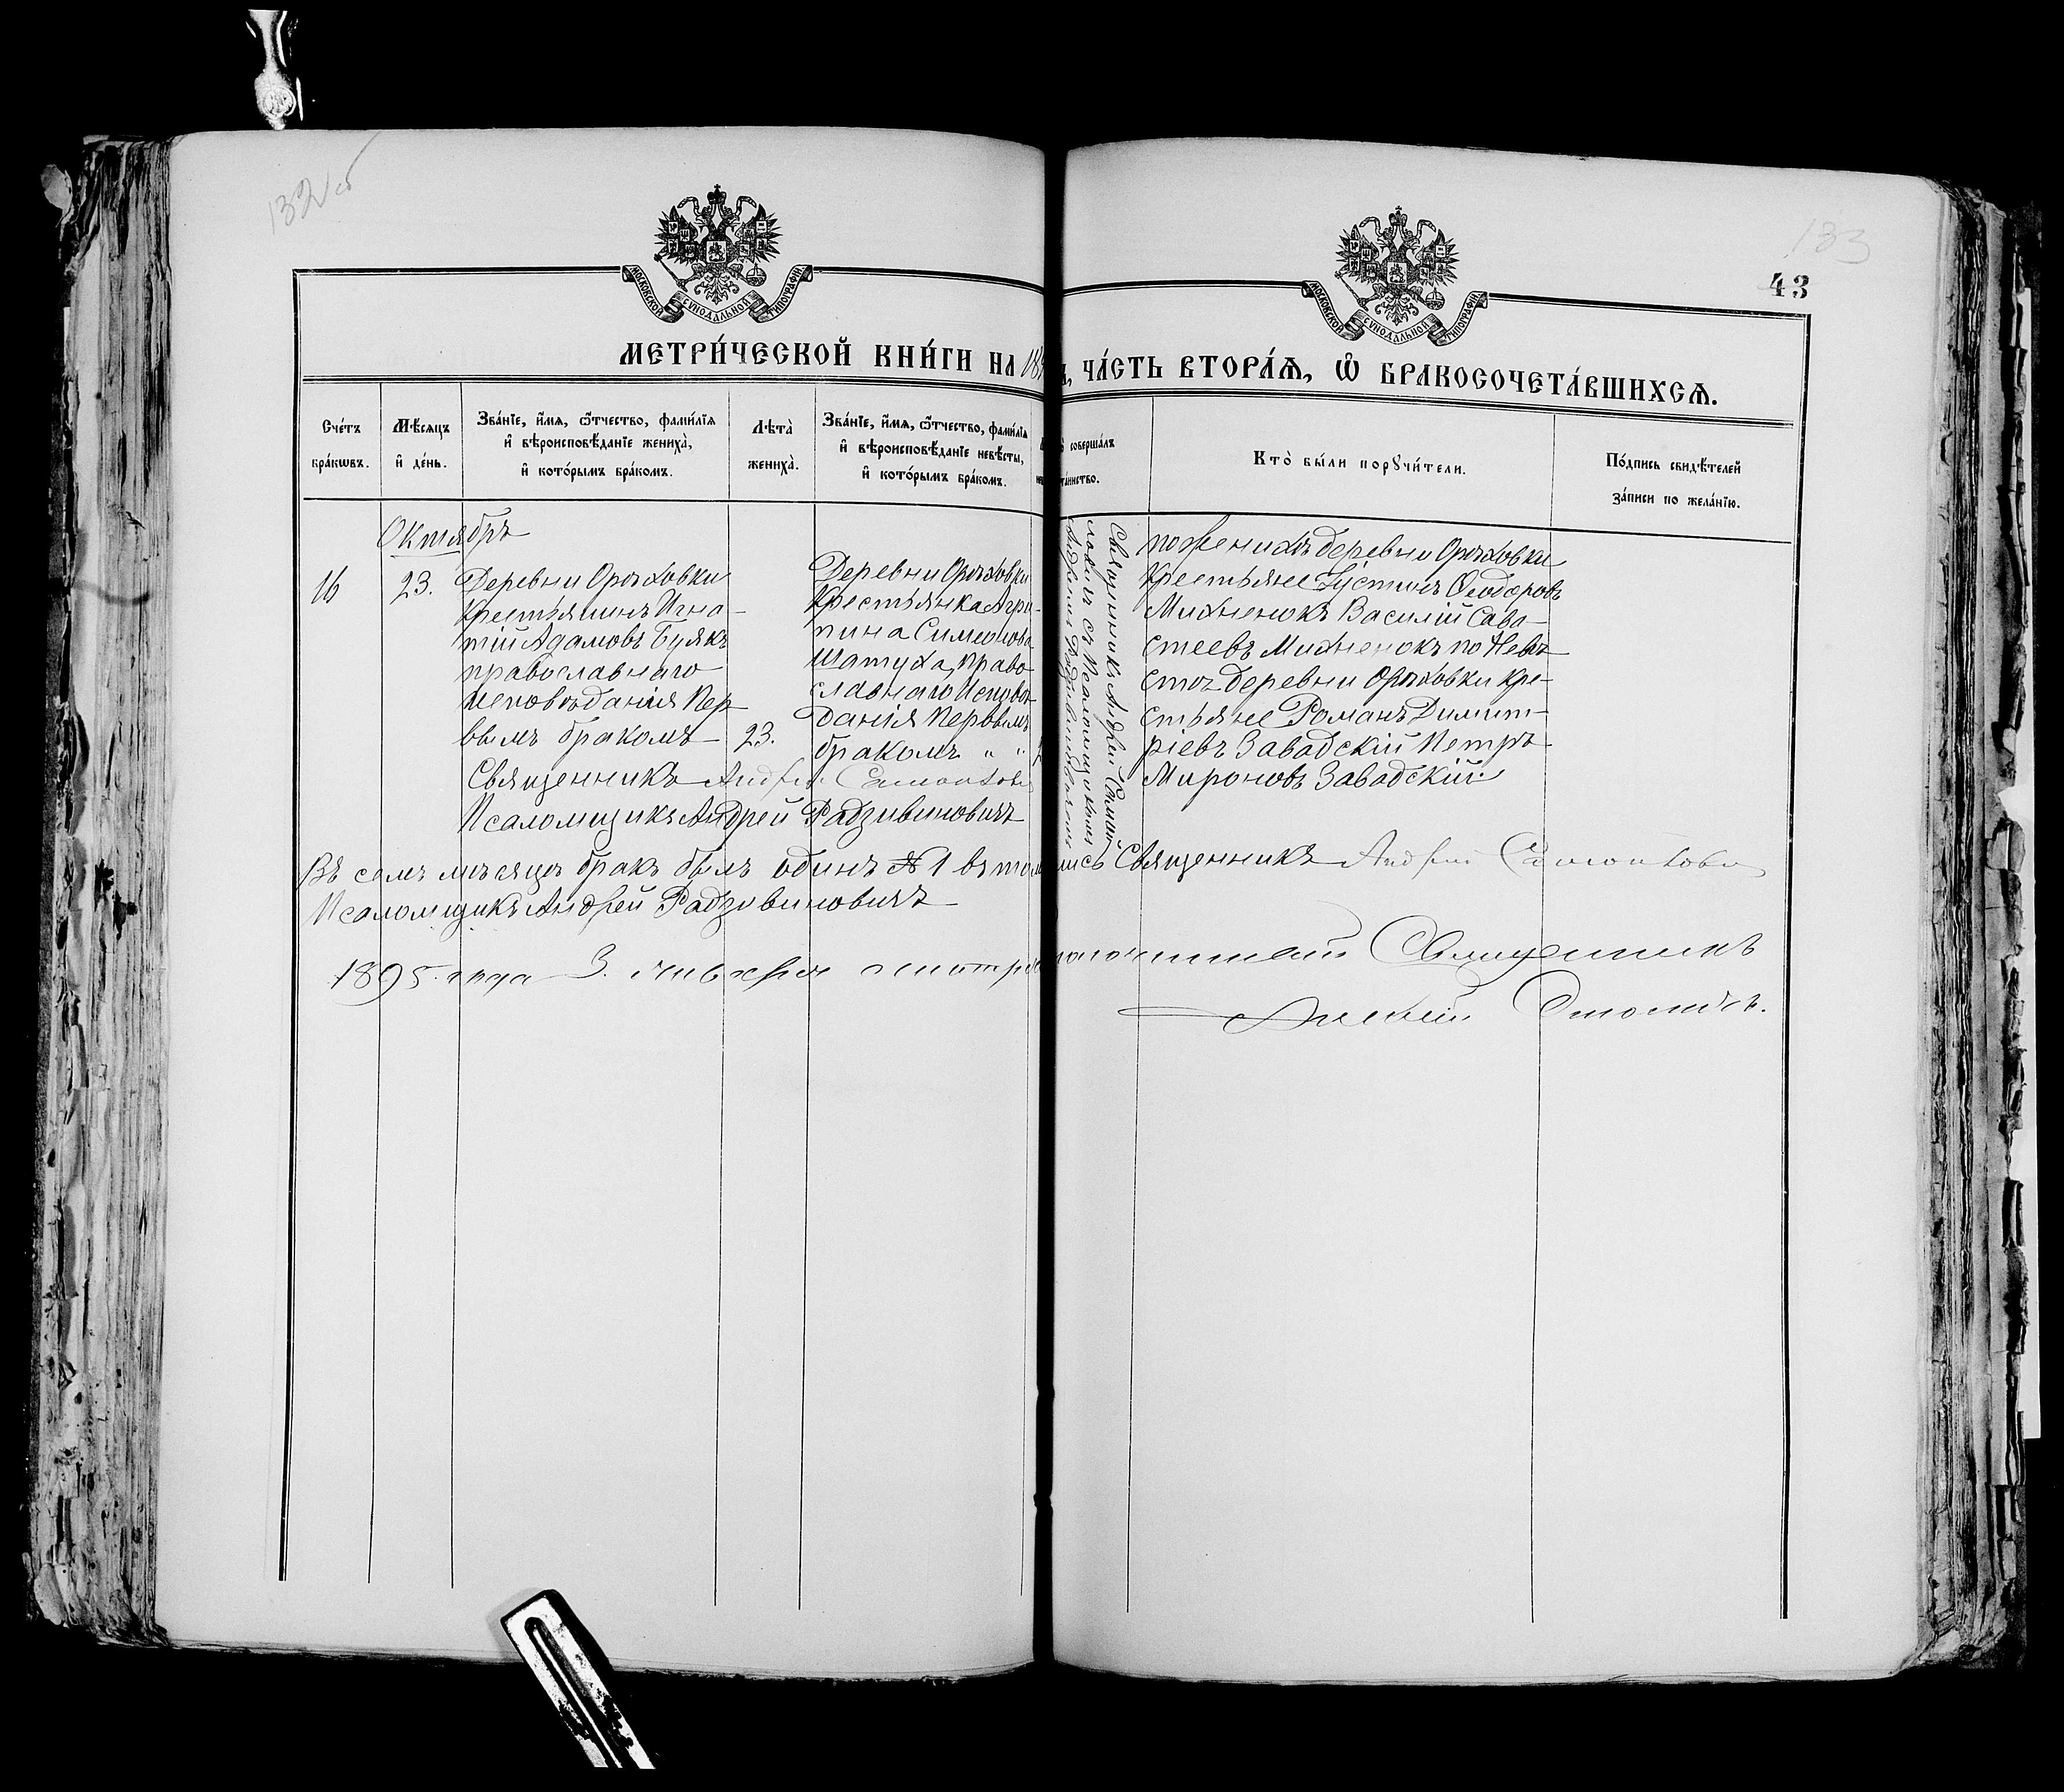 132 об
133
43
МОСКОВСКОЙ СУНОДАЛЬНОЙ ТИПОГРАФІИ
МОСКОВСКОЙ СУНОДАЛЬНОЙ ТИПОГРАФІИ
МЕТРИ́ЧЕСКОЙ КНИ́ГИ НА 189
ЧА́СТЬ ВТОРА́Ѧ, Ѽ БРАКОСОЧЕТА́ВШИХСѦ.
Сче́тъ
бра́кѡвъ.
Мѣ́сѧцъ
и҆ де́нь.
Зва́нїе, и҆́мѧ, ѻ҆́тчество, фами́лїѧ
и҆ вѣроисповѣ́данїе жениха̀,
и҆ кото́рымъ бра́комъ.
Лѣта̀
жениха̀.
Зва́нїе, и҆́мѧ, ѻ҆́тчество, фами́лїѧ
и҆ вѣроисповѣ́данїе невѣ́сты,
и҆ кото́рымъ бра́комъ.
соверша́лъ
та́инство.
Кто̀ бы́ли порꙋчи́тели.
По́дпись свидѣ́телей
за́писи по жела́нїю.
Октябрь
16
23.
Деревни Орѣховки
Крестьянинъ Игна-
тій Адамовъ Буякъ
православнаго
исповѣданія Пер-
вымъ бракомъ
23.
Деревни Орѣховки
Крестьянка Агри-
пина Симеонова
Шатуха, Право-
славнаго Исповѣ-
данія Первымъ
бракомъ " "
Священникъ Андрей
Псаломщикомъ
по женихѣ деревни Орѣховки
Крестьяне Іустинъ Ѳеодоровъ
Михненокъ Василій Сава-
стеевъ Михненокъ по Невѣ-
стѣ деревни Орѣховки Кре-
стьяне Романъ Димит-
ріевъ Завадскій Петръ
Мироновъ Завадскій
Священникъ Андрей
Псаломщикъ Андрей Радзивиновичъ
Въ семъ мѣсяцѣ бракъ былъ одинъ № 1 въ томъ Священникъ Андрей
Псаломщикъ Андрей Радзивиновичъ
1895 года 3. января Священникъ